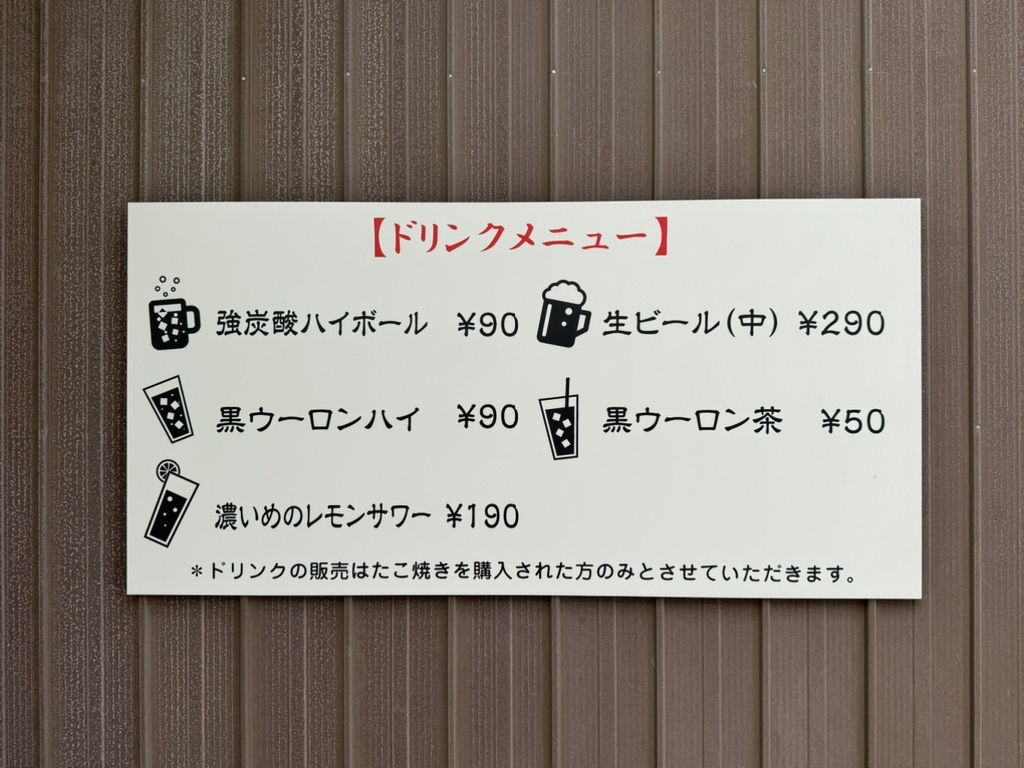 【ドリンクメニュー】
強炭酸ハイボール ¥90 生ビール(中) ¥290
黒ウーロンハイ ¥90 黒ウーロン茶 ¥50
濃いめのレモンサワー ¥190
＊ドリンクの販売はたこ焼きを購入された方のみとさせていただきます。